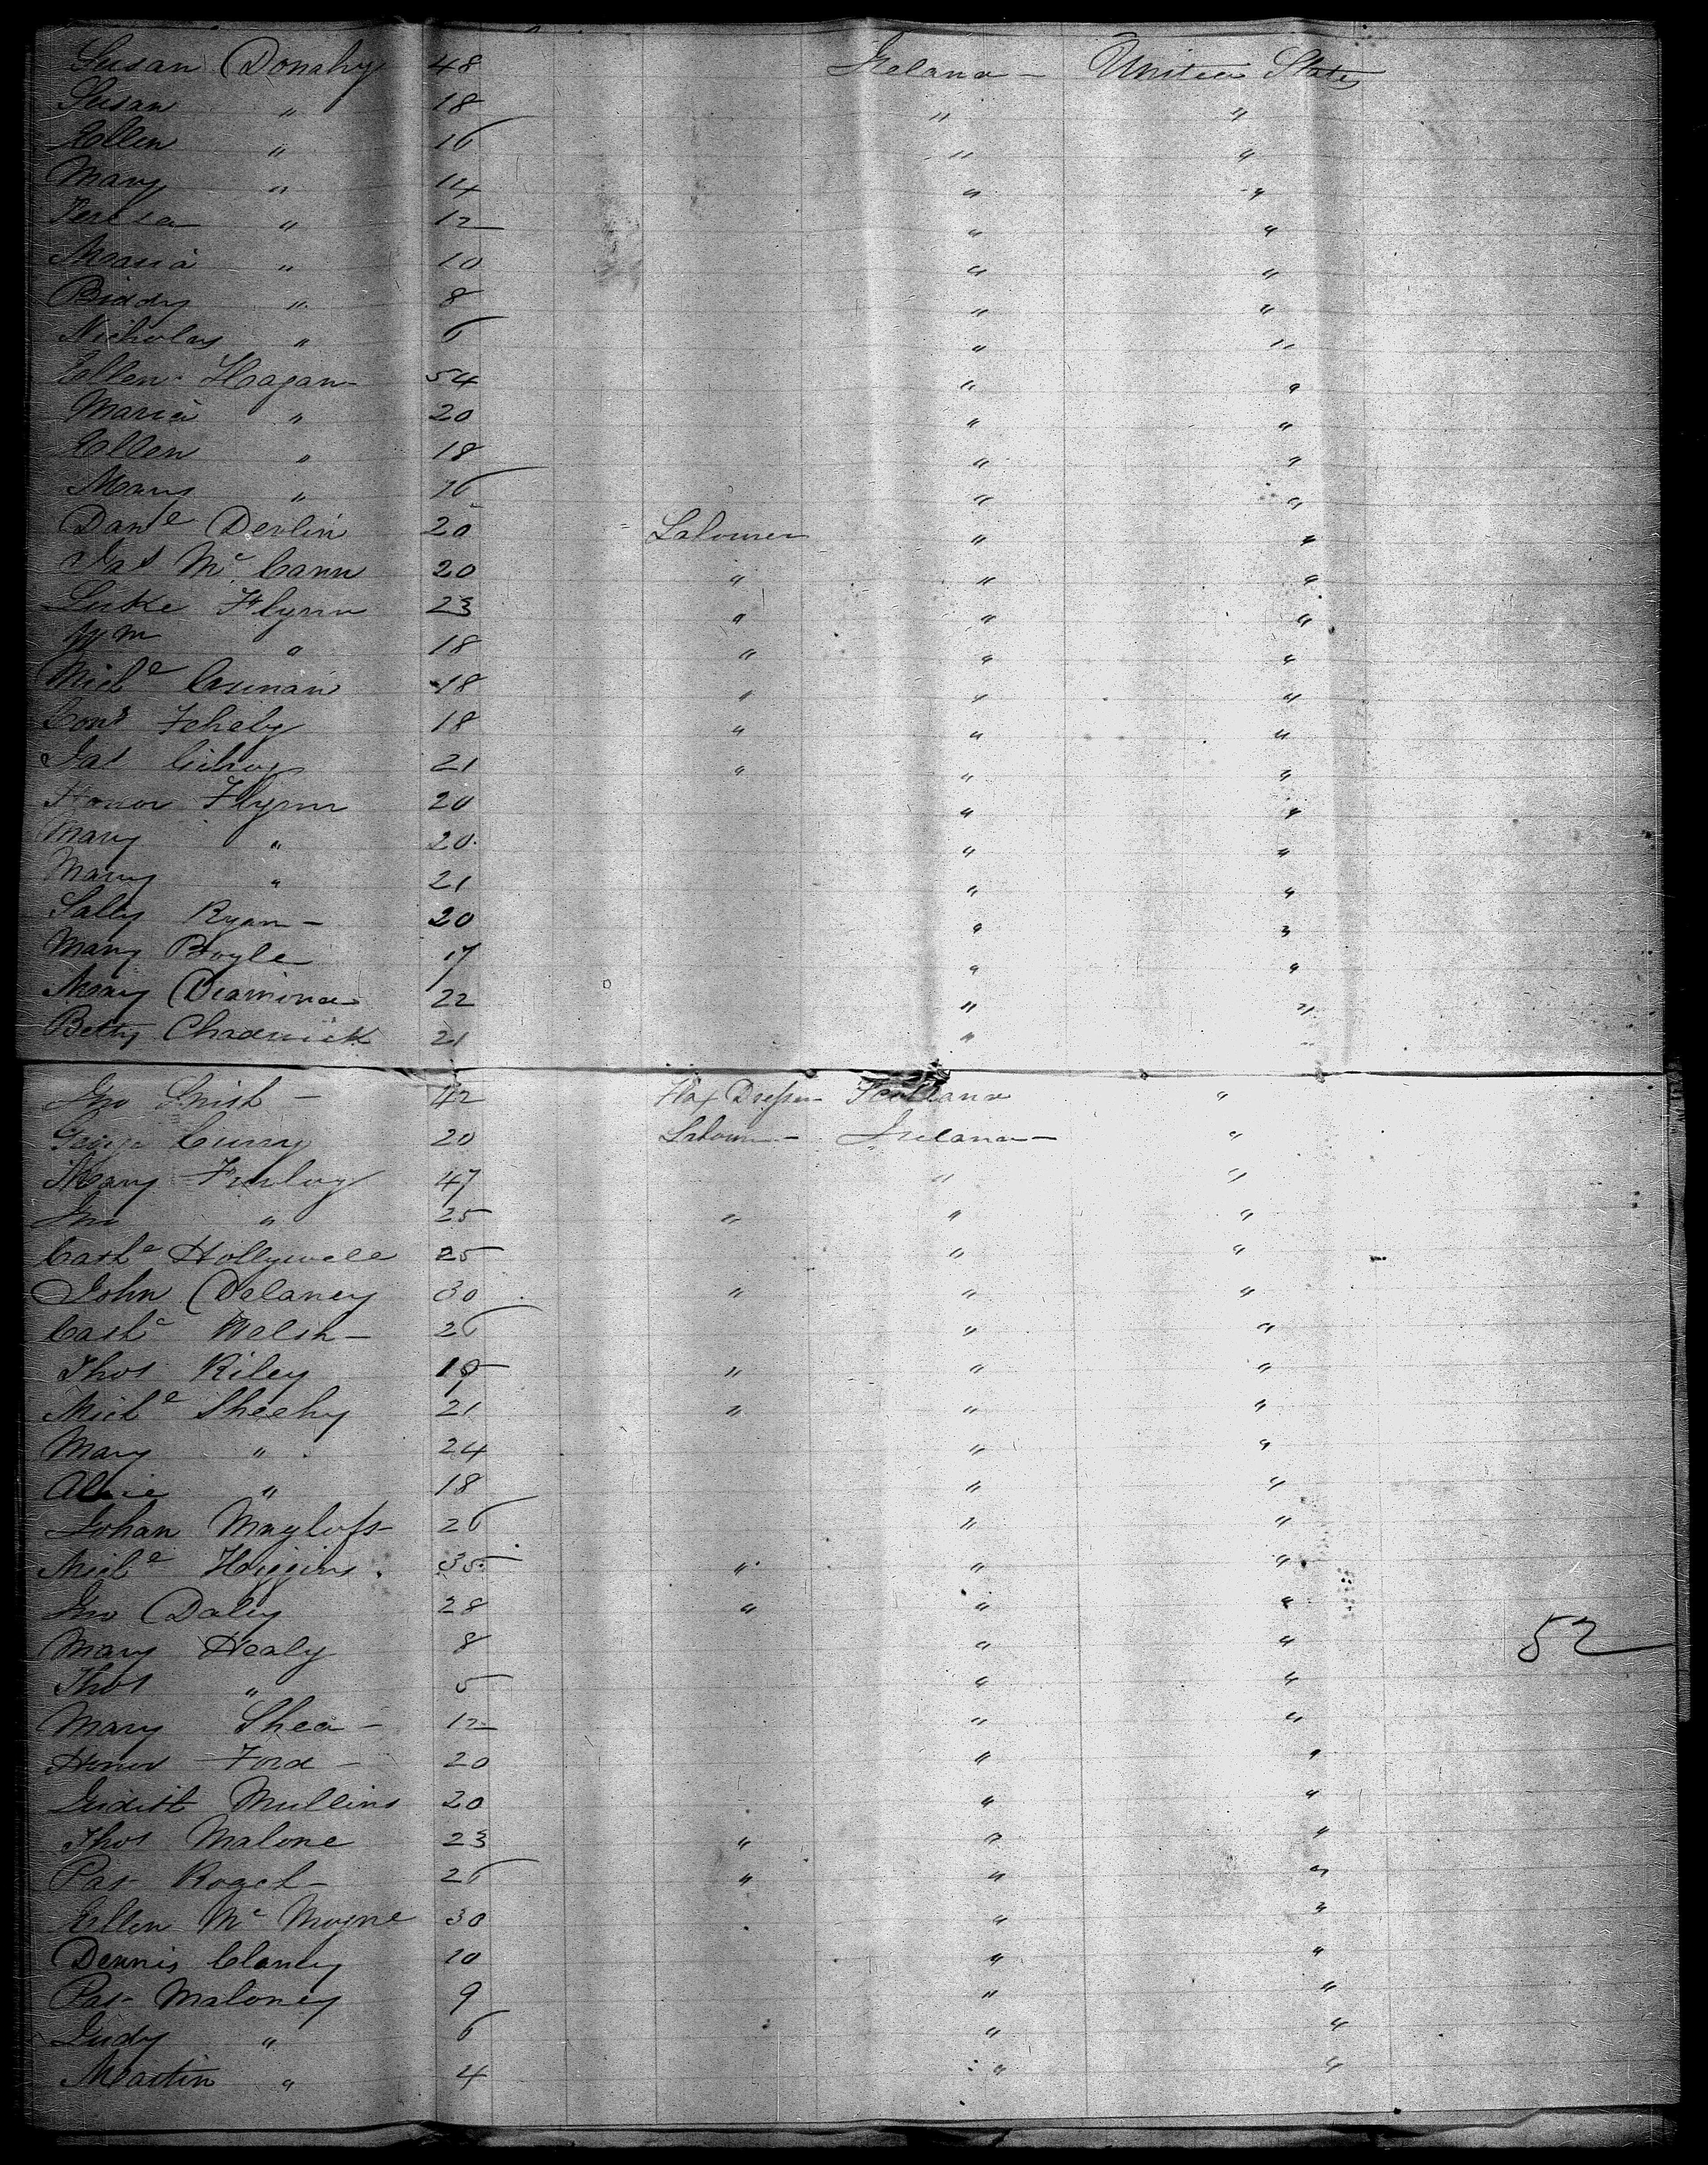 Susan Donahy 48 Ireland - United States
Susan " 18 " "
Ellen " 16 " "
Mary " 14 " "
Teresa " 12 " "
Maria " 10 " "
Biddy " 8 " "
Nicholas " 6 " "
Ellen Hagan 54 " "
Maria " 20 " "
Ellen " 18 " "
Mary " 16 " "
Danl Devlin 20 Labourer " "
Pat McCann 20 " " "
Luke Flynn 23 " " "
Wm " 18 " " "
Michl 18 " " "
18 " " "
Pat 21 " " "
Honor Flynn 20 " "
Mary " 20 " "
Mary " 21 " "
Sally Ryan - 20 " "
Mary Boyle 17 " "
Mary Diamond 22 " "
Betty Chadwick 21 " "
Jno - 42 Flax Dresser Scotland "
Curry 20 Labourer - Ireland - "
Mary 47 " "
Jno " 25 " " "
Cathe Hollywell 25 " "
John Delaney 30 " " "
Cathe Welsh - 26 " "
Thos Riley 19 " " "
Michl Sheehy 21 " " "
Mary " 24 " "
Alice " 18 " "
Johan 26 " "
Michl Higgins 35 " " "
Jno Daley 28 " " "
Mary Healy 8 " " 52
Thos " 5 " "
Mary Shea - 12 " "
Honor Ford - 20 " "
Judith Mullins 20 " "
Thos Malone 23 " " "
Pat 26 " " "
Ellen Mc 30 " "
Dennis Clancy 10 " "
Pat Maloney 9 " "
Judy " 6 " "
Martin " 4 " "